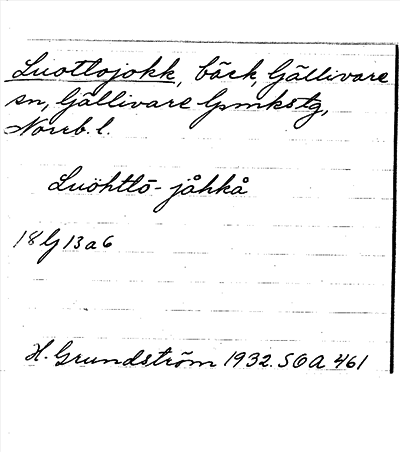 Luottojokk, bäck, Gällivare
sn, Gällivare lpmkstg,
Norrb. l.
Luöhttō-jåhkå
18 G 13 a 6
H. Grundström 1932. SOA 461